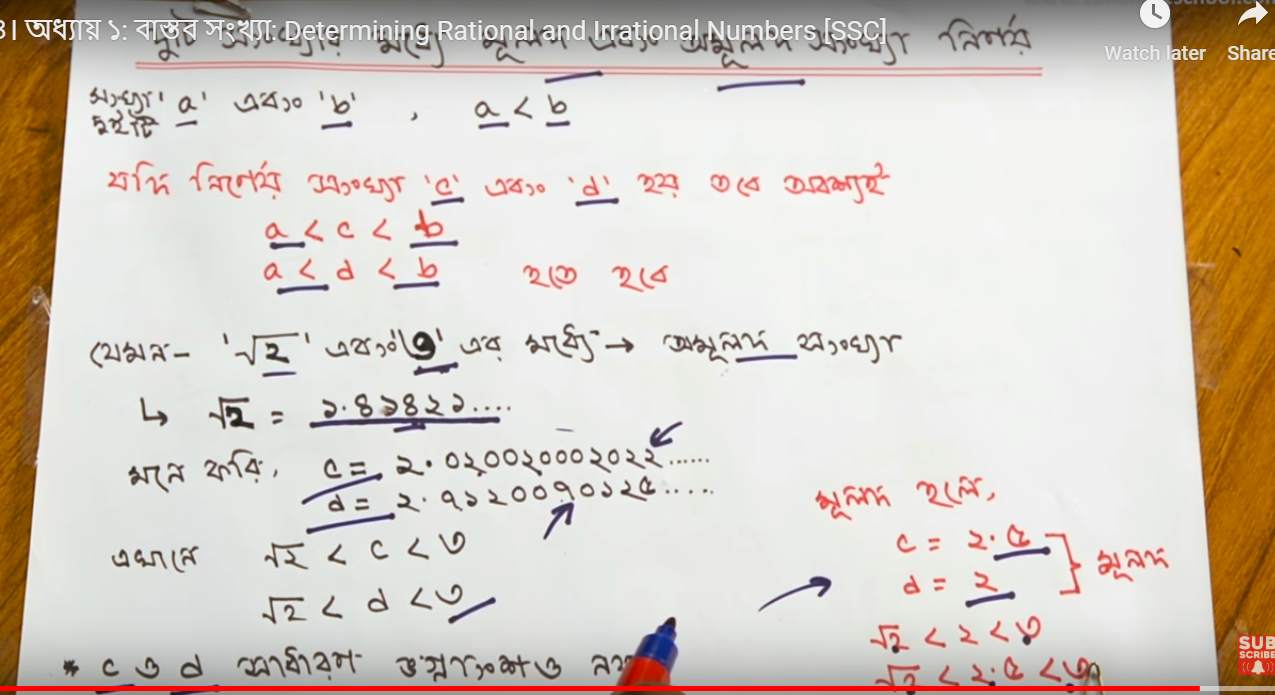 ৪। অধ্যায় ১: বাস্তব সংখ্যা: Determining Rational and Irrational Numbers [SSC]
Watch later Share
দুটি সংখ্যার মধ্যে মূলদ এবং অমূলদ সংখ্যা নির্ণয়
সংখ্যা দুইটি 'a' এবং 'b' , a < b
যদি নির্ণেয় সংখ্যা 'c' এবং 'd' হয় তবে অবশ্যই
a < c < b
a < d < b হতে হবে
যেমন- '√২' এবং '৩' এর মধ্যে → অমূলদ সংখ্যা
↳ √২ = ১.৪১৪২১....
মনে করি, c = ২.০২০০২০০০২০২২......
d = ২.৭১২০০৭০১২৫.....
এখানে √২ < c < ৩
√২ < d < ৩
* c ও d সাধারণ ভগ্নাংশও
মূলদ হলে,
c = ২.৫
d = ২ } মূলদ
√২ < ২ < ৩
√২ < ২.৫ < ৩
SUB
SCRIBE